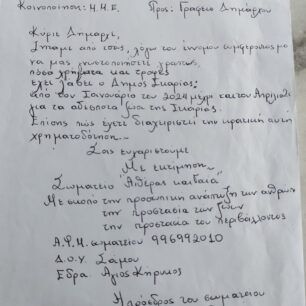 Κοινοποίηση: Μ.Μ.Ε. Προς: Γραφείο Δημάρχου
Κύριε Δήμαρχε,
Ζητάμε από εσάς, λόγω του έννομου συμφέροντος μα
να μας γνωστοποιήσετε γραπτώς,
πόσα χρήματα και τροφές
έχει λάβει ο Δήμος Ικαρίας
από τον Ιανουάριο του 2024 μέχρι και τον Απρίλιο
για τα αδέσποτα ζώα της Ικαρίας.
Επίσης πώς έχετε διαχειριστεί την κρατική αυτή
χρηματοδότηση.
Σας ευχαριστούμε
Με εκτίμηση
Σωματείο "Αθέρας καιδαιά"
Με σκοπό την προσωπική ανάπτυξη των ανθρώ
την προστασία των ζώων
την προστασία του περιβάλλοντος
Α.Φ.Μ. σωματείου 996992010
Δ.Ο.Υ. Σάμου
Έδρα: Άγιος Κήρυκος
Η πρόεδρος του σωματείου